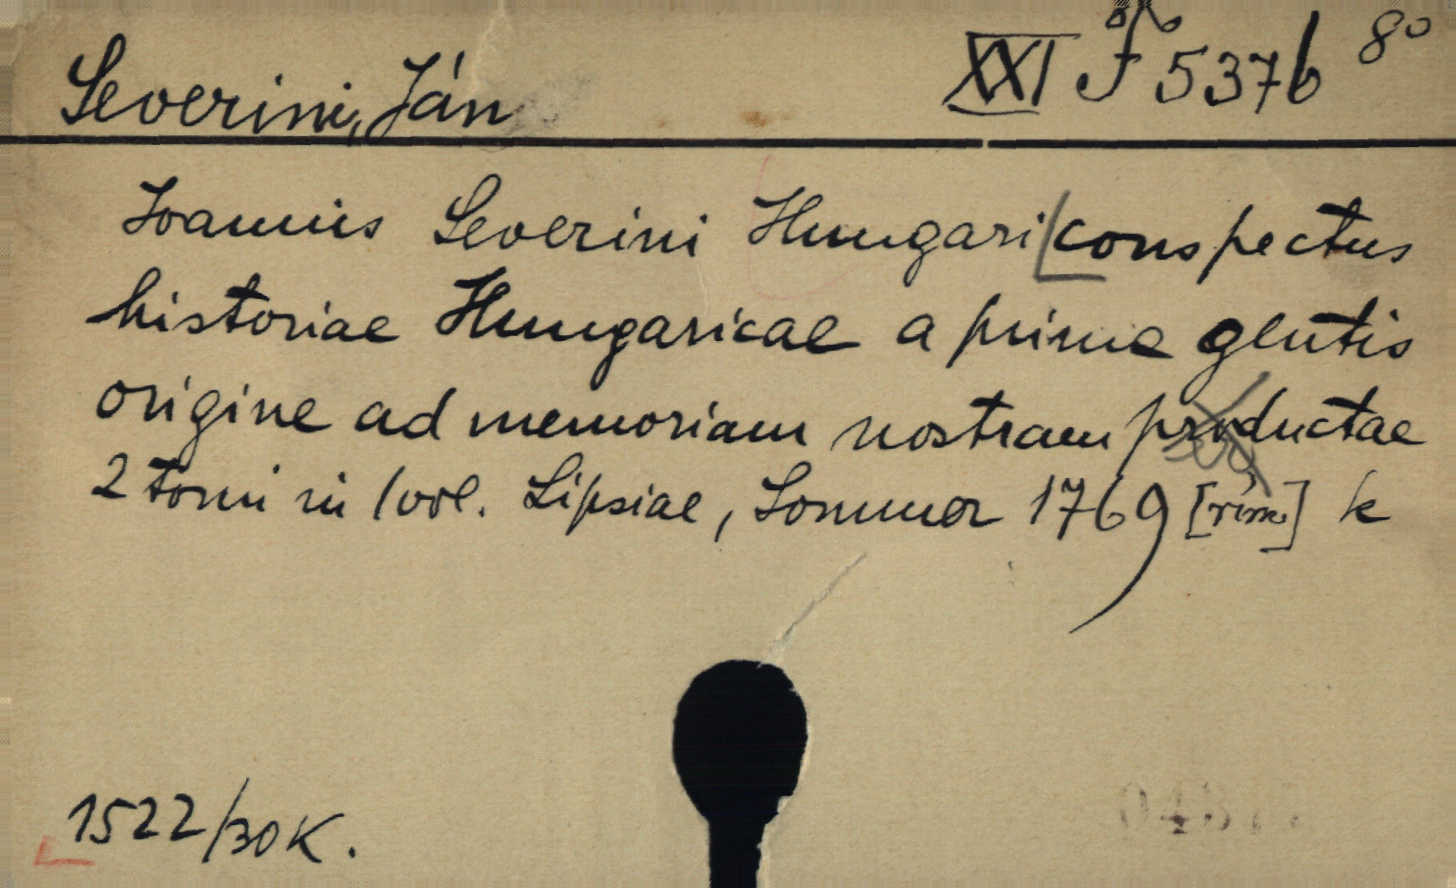 Severini, Ján
XXI J 5376 8°
Ioannis Severini Hungari conspectus
historiae Hungaricae a prima gentis
origine ad memoriam nostram productae
2 tomi in 1 vol. Lipsiae, Sommer 1769 [rím.] k
1522/30K.